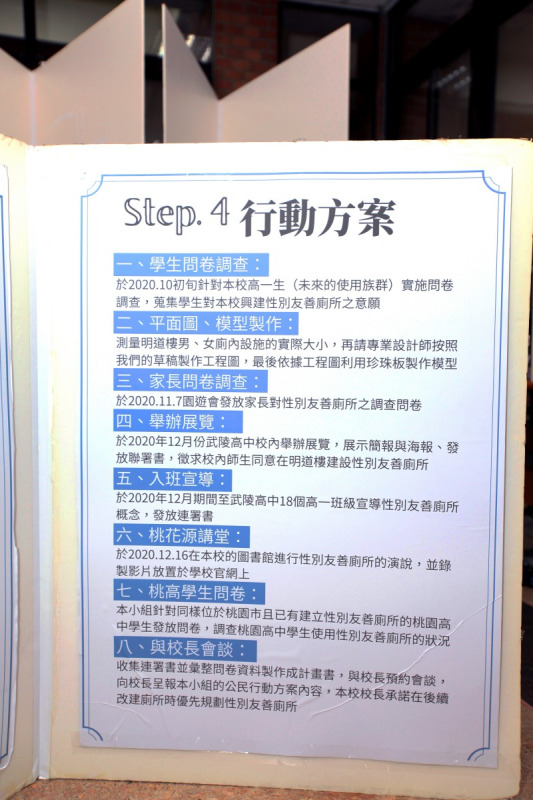 Step. 4 行動方案
一、學生問卷調查：
於2020.10初旬針對本校高一生（未來的使用族群）實施問卷
調查，蒐集學生對本校興建性別友善廁所之意願
二、平面圖、模型製作：
測量明道樓男、女廁內設施的實際大小，再請專業設計師按照
我們的草稿製作工程圖，最後依據工程圖利用珍珠板製作模型
三、家長問卷調查：
於2020.11.7園遊會發放家長對性別友善廁所之調查問卷
四、舉辦展覽：
於2020年12月份武陵高中校內舉辦展覽，展示簡報與海報、發
放聯署書，徵求校內師生同意在明道樓建設性別友善廁所
五、入班宣導：
於2020年12月期間至武陵高中18個高一班級宣導性別友善廁所
概念，發放連署書
六、桃花源講堂：
於2020.12.16在本校的圖書館進行性別友善廁所的演說，並錄
製影片放置於學校官網上
七、桃高學生問卷：
本小組針對同樣位於桃園市且已有建立性別友善廁所的桃園高
中學生發放問卷，調查桃園高中學生使用性別友善廁所的狀況
八、與校長會談：
收集連署書並彙整問卷資料製作成計畫書，與校長預約會談，
向校長呈報本小組的公民行動方案內容，本校校長承諾在後續
改建廁所時優先規劃性別友善廁所